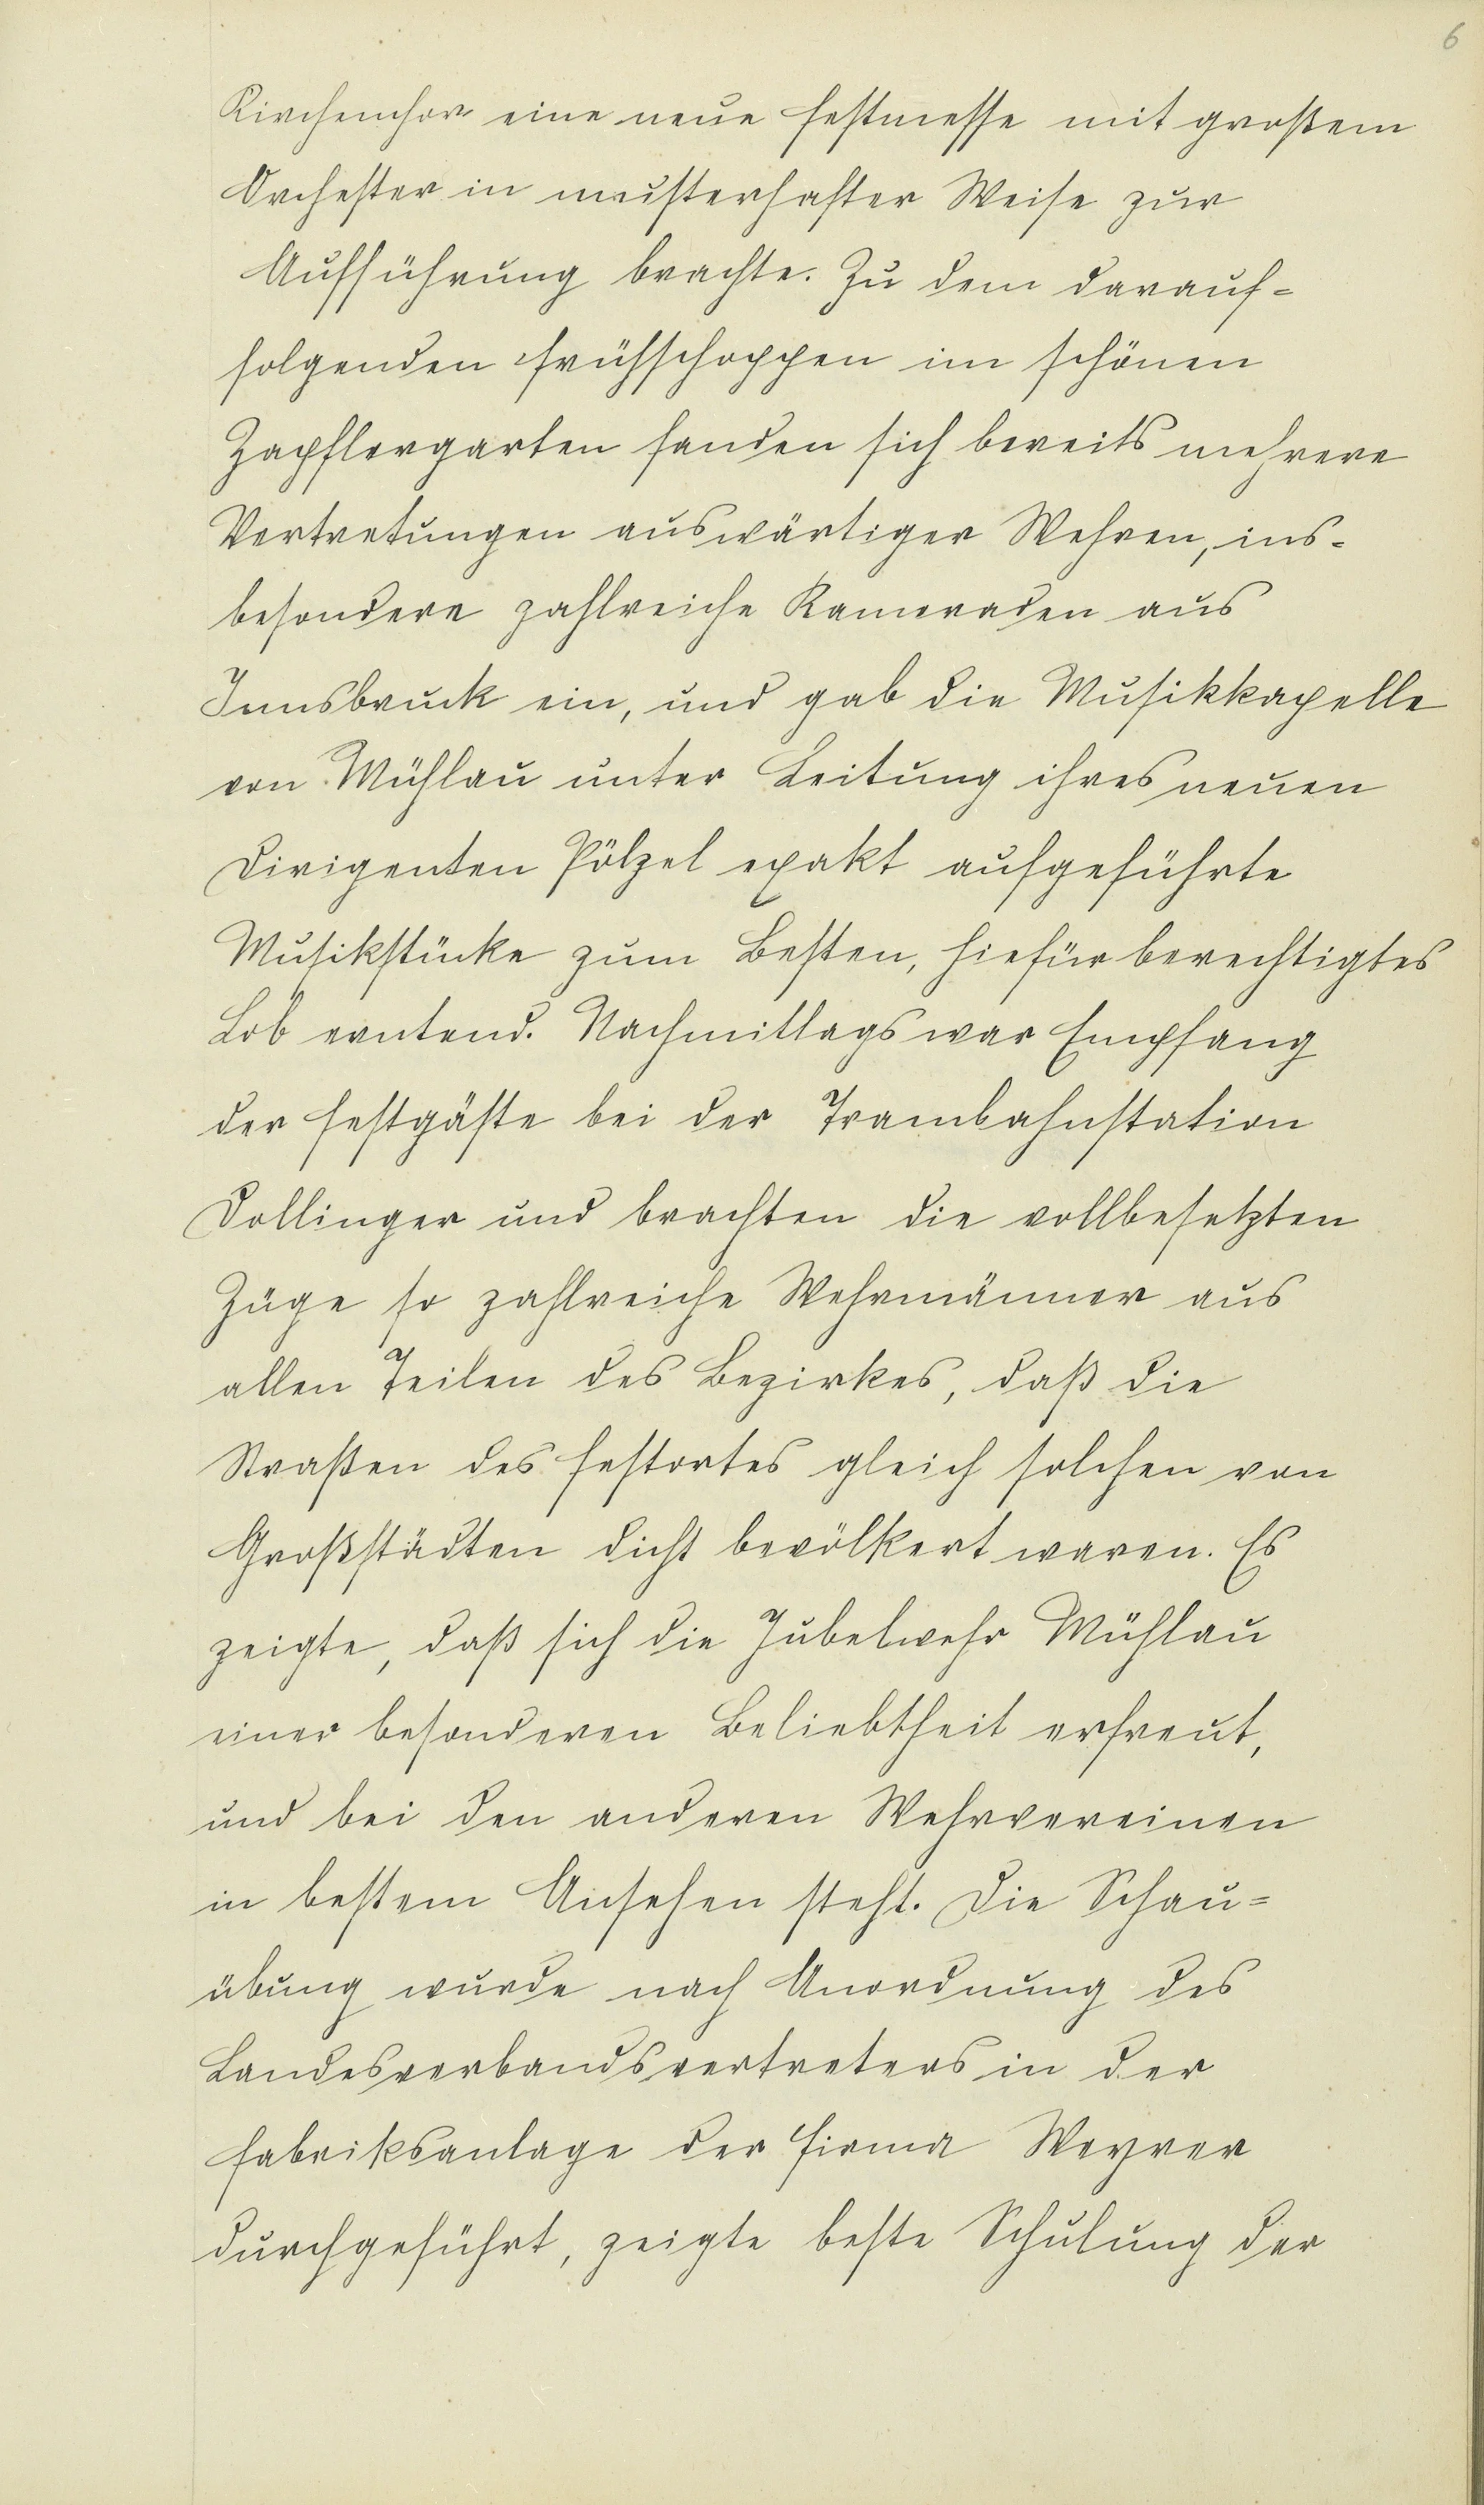 6
Kirchenchor eine neue Festmesse mit großem
Orchester in musterhafter Weise zur
Aufführung brachte. Zu dem darauf-
folgenden Frühschoppen im schönen
Zapflergarten fanden sich bereits mehrere
Vertretungen auswärtiger Wehren, ins-
besondere zahlreiche Kameraden aus
Innsbruck ein, und gab die Musikkapelle
von Mühlau unter Leitung ihres neuen
Dirigenten Pölzel exakt aufgeführte
Musikstücke zum Besten, hiefür berechtigtes
Lob erntend. Nachmittags war Empfang
der Festgäste bei der Trambahnstation
Dollinger und brachten die vollbesetzten
Züge so zahlreiche Wehrmänner aus
allen Teilen des Bezirkes, daß die
Straßen des Festortes gleich solchen von
Großstädten dicht bevölkert waren. Es
zeigte, daß sich die Jubelwehr Mühlau
einer besonderen Beliebtheit erfreut,
und bei den anderen Wehrvereinen
in bestem Ansehen steht. Die Schau-
übung wurde nach Anordnung des
Landesverbandsvertreters in der
Fabriksanlage der Firma Weyrer
durchgeführt, zeigte beste Schulung der